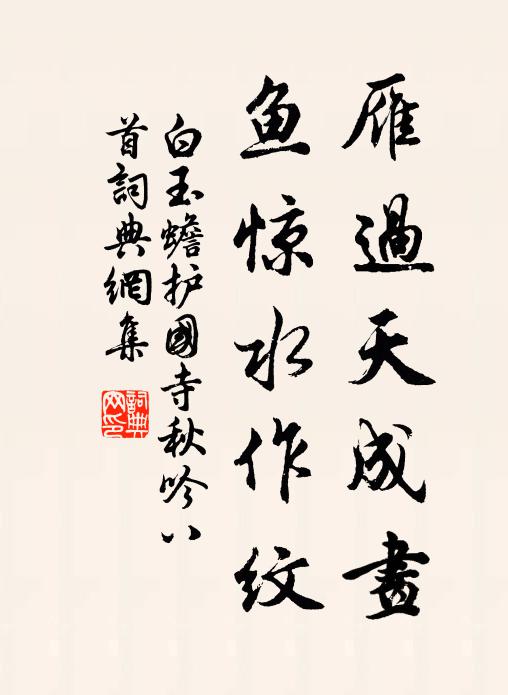 雁過天成畫
鱼惊水作纹
白玉蟾护國寺秋吟八
首詞典網集
詞典网印